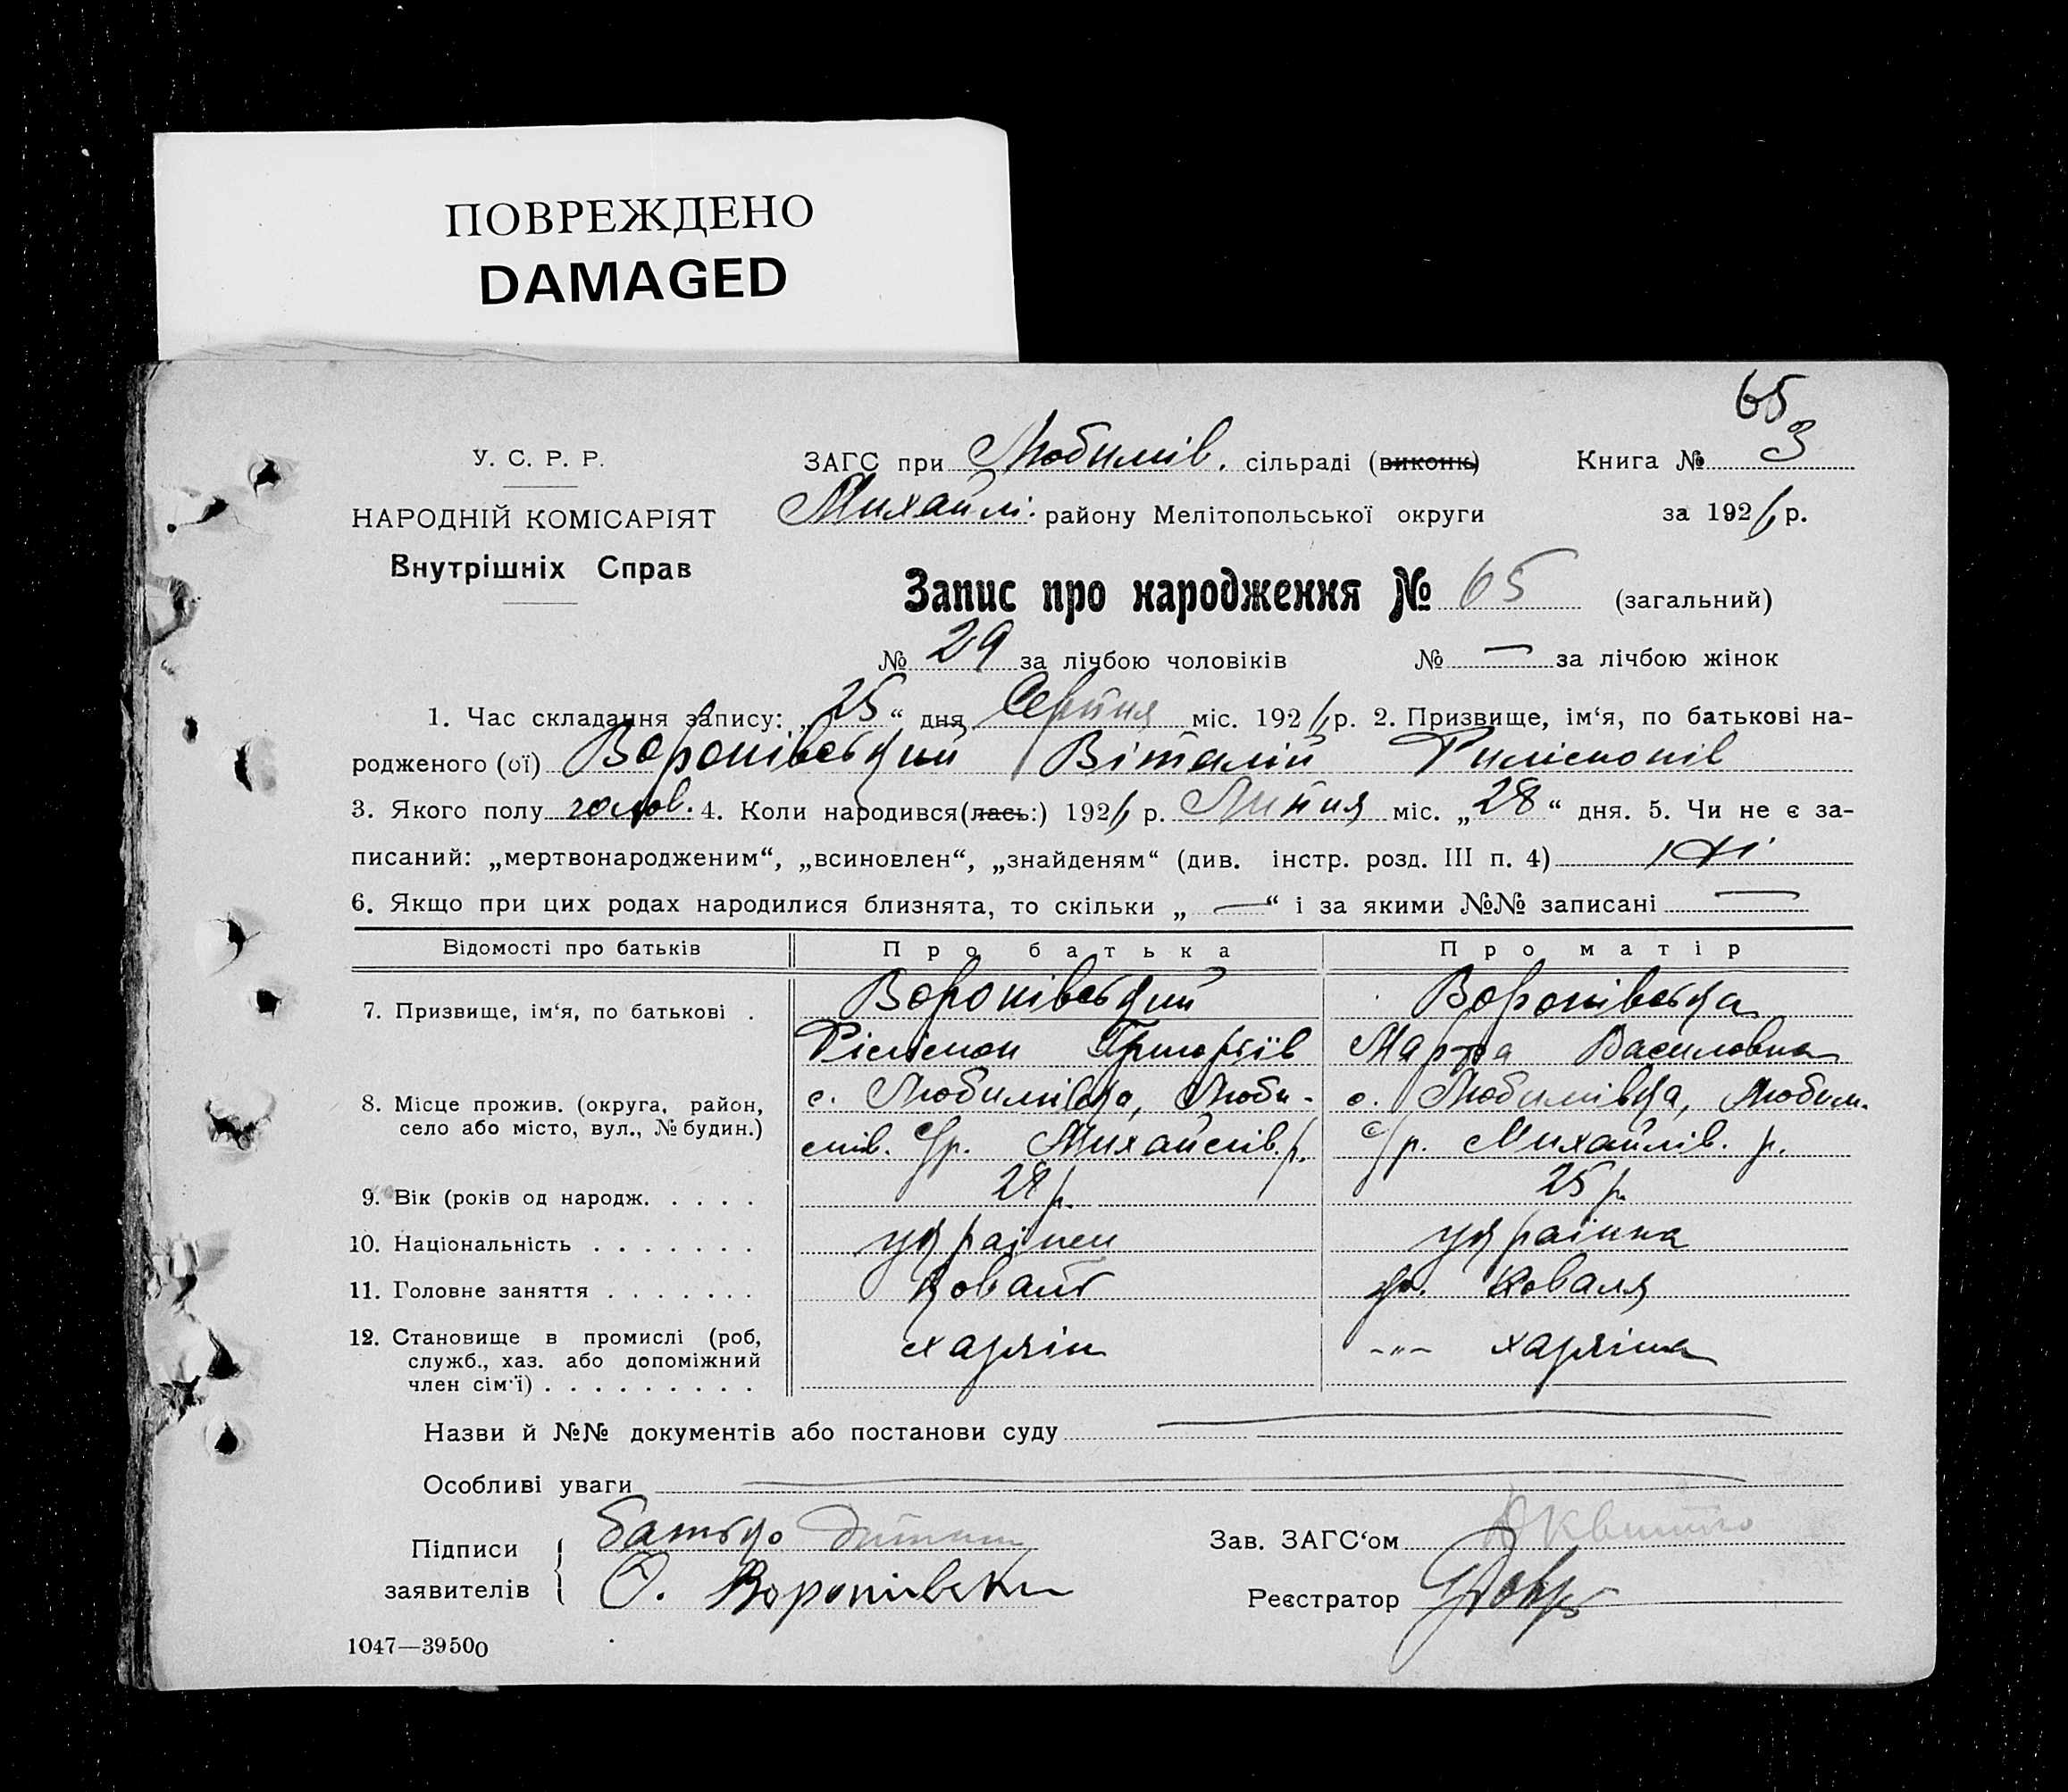 ПОВРЕЖДЕНО
DAMAGED
65
У. С. Р. Р.
ЗАГС при Любимів. сільраді (виконк)
Книга № 3
НАРОДНІЙ КОМІСАРІЯТ
Михайлі. району Мелітопольської округи
за 1926 р.
Внутрішніх Справ
Запис про народження № 65 (загальний)
№ 29 за лічбою чоловіків № — за лічбою жінок
1. Час складання запису: „25“ дня Серпня міс. 1926 р. 2. Призвище, ім‘я, по батькові на-
родженого (ої) Воропівський Віталій
3. Якого полу чолов. 4. Коли народився(лась:) 1926 р. Липня міс. „28“ дня. 5. Чи не є за-
писаний: „мертвонародженим“, „всиновлен“, „знайденям“ (див. інстр. розд. III п. 4) ні
6. Якщо при цих родах народилися близнята, то скільки „ — “ і за якими №№ записані —
Відомості про батьків Про батька Про матір
7. Призвище, ім‘я, по батькові . Воропівський Воропівська
Григоріїв Марфа Василовна
8. Місце прожив. (округа, район, с. Любимівка, Люби- с. Любимівка, Любим.
село або місто, вул., № будин.) мів. с/р. Михайлів. р. с/р. Михайлів. р.
9. Вік (років од народж. . . . . 28 р. 25 р.
10. Національність . . . . . . . українец українка
11. Головне заняття . . . . . . . коваль Коваля
12. Становище в промислі (роб, хазяїн -"- хазяїна
служб., хаз. або допоміжний
член сім‘ї) . . . . . . . . .
Назви й №№ документів або постанови суду —
Особливі уваги —
Підписи батько дитини
Зав. ЗАГС‘ом
заявителів О. Воропівски
Реєстратор
1047—39500